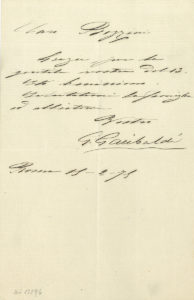 Caro Bozzoni
Grazie per la
gentile vostra del 13.
Sto benissimo.
Salutatemi la famiglia
ed abbiatemi
Vostro
G Garibaldi
Roma 15-2-75